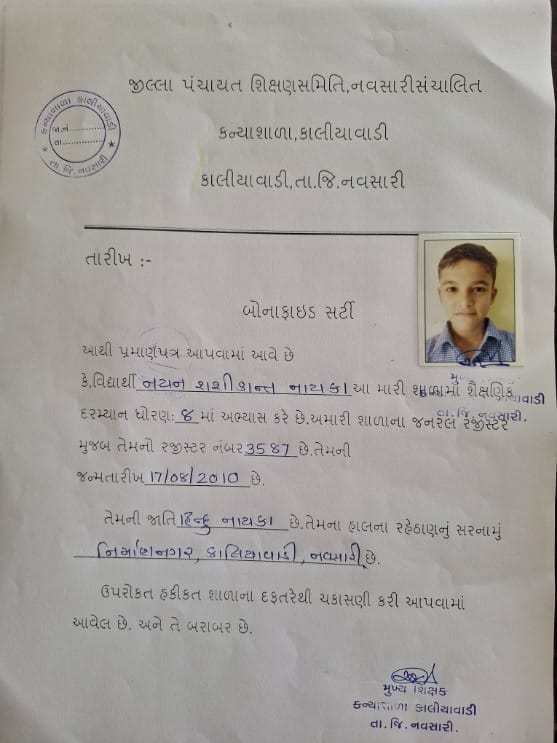 જીલ્લા પંચાયત શિક્ષણસમિતિ,નવસારીસંચાલિત
કન્યાશાળા,કાલીયાવાડી
કાલીયાવાડી,તા.જિ.નવસારી
કન્યાશાળા કાલીયાવાડી
જા.નં.............
તા................
તા.જિ. નવસારી
તારીખ :-
બોનાફાઇડ સર્ટી
આથી પ્રમાણપત્ર આપવામાં આવે છે
કે,વિદ્યાર્થી નયન શશીકાન્ત નાયકા આ મારી શાળામાં શૈક્ષણિક
દરમ્યાન ધોરણ: ૪ માં અભ્યાસ કરે છે.અમારી શાળાના જનરલ રજીસ્ટર
તા.જિ. નવસારી.
મુજબ તેમનો રજીસ્ટર નંબર 3587 છે.તેમની
જન્મતારીખ 17/08/2010 છે.
તેમની જાતિ હિન્દુ નાયકા છે.તેમના હાલના રહેઠાણનું સરનામું
નિર્માણનગર, કાલિયાવાડી, નવસારી છે.
ઉપરોકત હકીકત શાળાના દફતરેથી ચકાસણી કરી આપવામાં
આવેલ છે. અને તે બરાબર છે.
મુખ્ય શિક્ષક
કન્યાશાળા કાલીયાવાડી
તા. જિ. નવસારી.